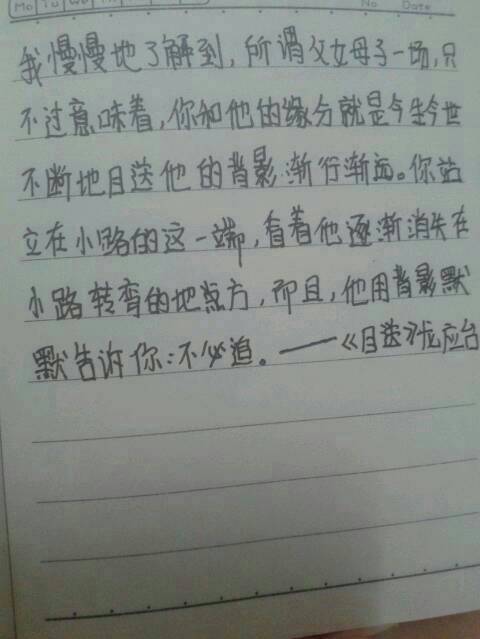 Mo Tu We Th No Date
我慢慢地了解到，所谓父女母子一场，只
不过意味着，你和他的缘分就是今生今世
不断地目送他的背影渐行渐远。你站
立在小路的这一端，看着他逐渐消失在
小路转弯的地点方，而且，他用背影默
默告诉你：不必追。——《目送》龙应台